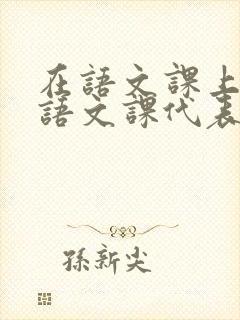 在語文課上
語文課代表
孫新尖